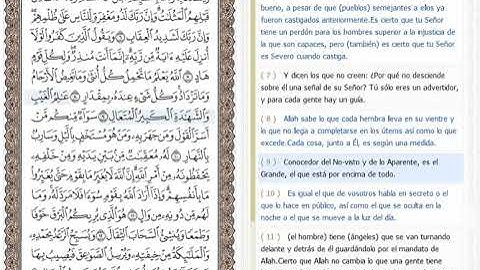 قَبْلِهِمُ ٱلْمَثُلَٰتُ وَإِنَّ رَبَّكَ لَذُو مَغْفِرَةٍ لِّلنَّاسِ عَلَىٰ
ظُلْمِهِمْ وَإِنَّ رَبَّكَ لَشَدِيدُ ٱلْعِقَابِ ٦ وَيَقُولُ ٱلَّذِينَ كَفَرُوا۟ لَوْلَآ
أُنزِلَ عَلَيْهِ ءَايَةٌ مِّن رَّبِّهِۦٓ إِنَّمَآ أَنتَ مُنذِرٌ وَلِكُلِّ قَوْمٍ
هَادٍ ٧ ٱللَّهُ يَعْلَمُ مَا تَحْمِلُ كُلُّ أُنثَىٰ وَمَا تَغِيضُ ٱلْأَرْحَامُ
وَمَا تَزْدَادُ وَكُلُّ شَىْءٍ عِندَهُۥ بِمِقْدَارٍ ٨ عَٰلِمُ ٱلْغَيْبِ
وَٱلشَّهَٰدَةِ ٱلْكَبِيرُ ٱلْمُتَعَالِ ٩ سَوَآءٌ مِّنكُم مَّنْ
أَسَرَّ ٱلْقَوْلَ وَمَن جَهَرَ بِهِۦ وَمَنْ هُوَ مُسْتَخْفٍۭ بِٱلَّيْلِ وَسَارِبٌۢ
بِٱلنَّهَارِ ١٠ لَهُۥ مُعَقِّبَٰتٌ مِّنۢ بَيْنِ يَدَيْهِ وَمِنْ خَلْفِهِۦ يَحْفَظُونَهُۥ
مِنْ أَمْرِ ٱللَّهِ إِنَّ ٱللَّهَ لَا يُغَيِّرُ مَا بِقَوْمٍ حَتَّىٰ يُغَيِّرُوا۟
مَا بِأَنفُسِهِمْ وَإِذَآ أَرَادَ ٱللَّهُ بِقَوْمٍ سُوٓءًا فَلَا مَرَدَّ لَهُۥ وَمَا
لَهُم مِّن دُونِهِۦ مِن وَالٍ ١١ هُوَ ٱلَّذِى يُرِيكُمُ ٱلْبَرْقَ خَوْفًا
وَطَمَعًا وَيُنشِئُ ٱلسَّحَابَ ٱلثِّقَالَ ١٢ وَيُسَبِّحُ ٱلرَّعْدُ بِحَمْدِهِۦ
وَٱلْمَلَٰٓئِكَةُ مِنْ خِيفَتِهِۦ وَيُرْسِلُ ٱلصَّوَٰعِقَ فَيُصِيبُ بِهَا
bueno, a pesar de que (pueblos) semejantes a ellos ya
fueron castigados anteriormente.Es cierto que tu Señor
tiene un perdón para los hombres superior a la injusticia de
la que son capaces, pero (también) es cierto que tu Señor
es Severo cuando castiga.
( 7 ) Y dicen los que no creen: ¿Por qué no desciende
sobre él una señal de su Señor? Tú sólo eres un advertidor,
y para cada gente hay un guía.
( 8 ) Allah sabe lo que cada hembra lleva en su vientre y
lo que no llega a completarse en los úteros así como lo que
excede.Cada cosa, junto a Él, es según una medida.
( 9 ) Conocedor del No-visto y de lo Aparente, es el
Grande, el que está por encima de todo.
( 10 ) Es igual el que de vosotros habla en secreto o el
que lo hace en público, así como el que se oculta en la
noche o el que se mueve a la luz del día.
( 11 ) (el hombre) tiene (ángeles) que se van turnando
delante y detrás de él guardándolo por el mandato de
Allah.Cierto que Allah no cambia lo que una gente tiene